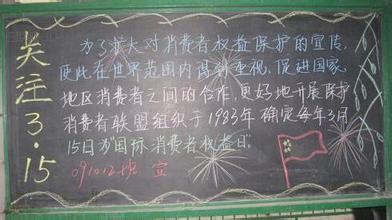 关注3·15
为了扩大对消费者权益保护的宣传,
使此在世界范围内得到重视,促进国家、
地区消费者之间的合作,更好地开展保护
消费者联盟组织于1983年确定每年3月
15日为国际消费者权益日。
091012班 宣